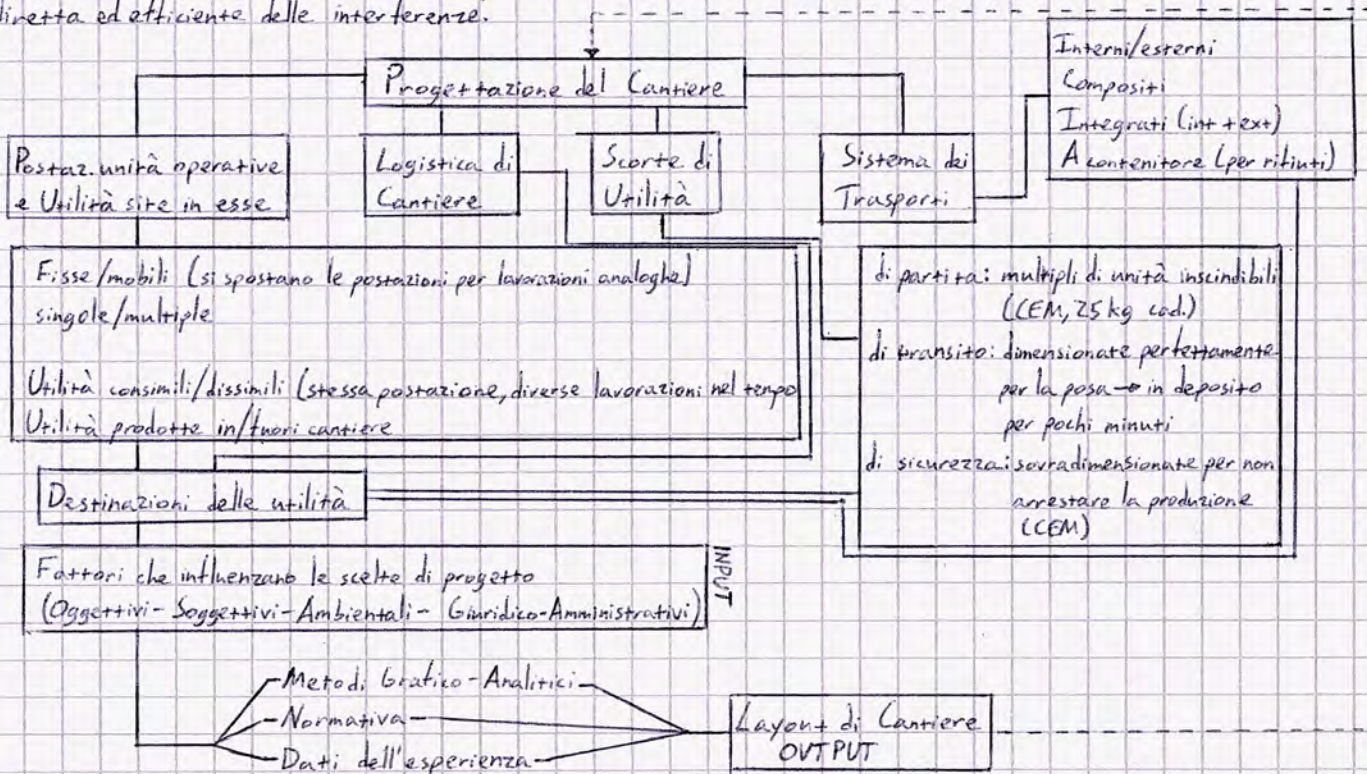 diretta ed efficiente delle interferenze.
Progettazione del Cantiere
Interni/esterni
Compositi
Integrati (int + ext)
A contenitore (per rifiuti)
Postaz. unità operative
e Utilità site in esse
Logistica di
Cantiere
Scorte di
Utilità
Sistema dei
Trasporti
Fisse/mobili (si spostano le postazioni per lavorazioni analoghe)
singole/multiple
Utilità consimili/dissimili (stessa postazione, diverse lavorazioni nel tempo
Utilità prodotte in/fuori cantiere
di partita: multipli di unità inscindibili
(CEM, 25 kg cad.)
di transito: dimensionate perfettamente
per la posa → in deposito
per pochi minuti
di sicurezza: sovradimensionate per non
arrestare la produzione
(CEM)
Destinazioni delle utilità
Fattori che influenzano le scelte di progetto
(Oggettivi - Soggettivi - Ambientali - Giuridico-Amministrativi)
INPUT
Metodi Grafico-Analitici
Normativa
Dati dell'esperienza
Layout di Cantiere
OUTPUT